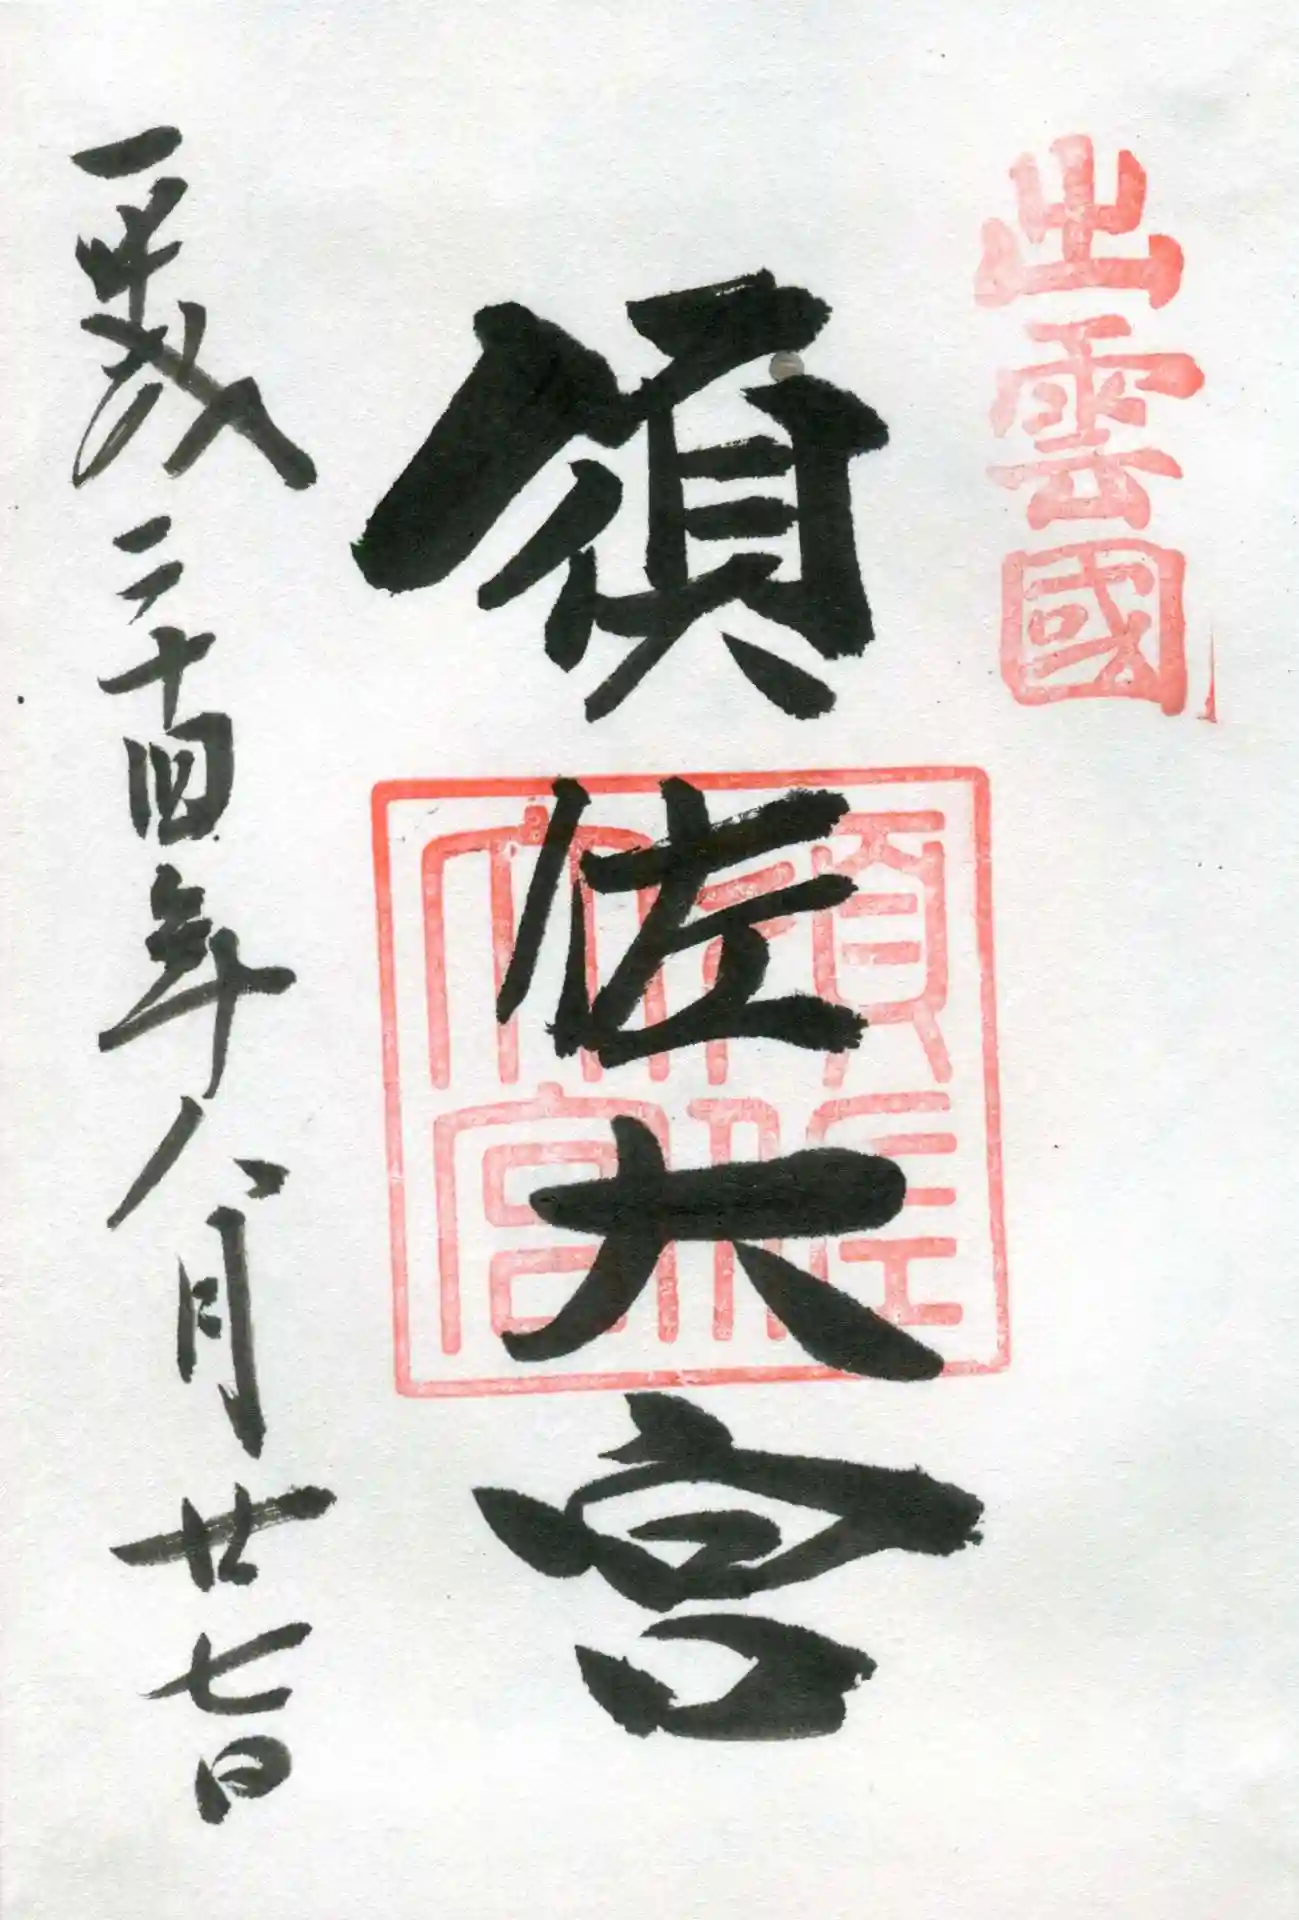 出雲國
須佐大宮
須佐神社大宮
平成二十四年八月廿七日